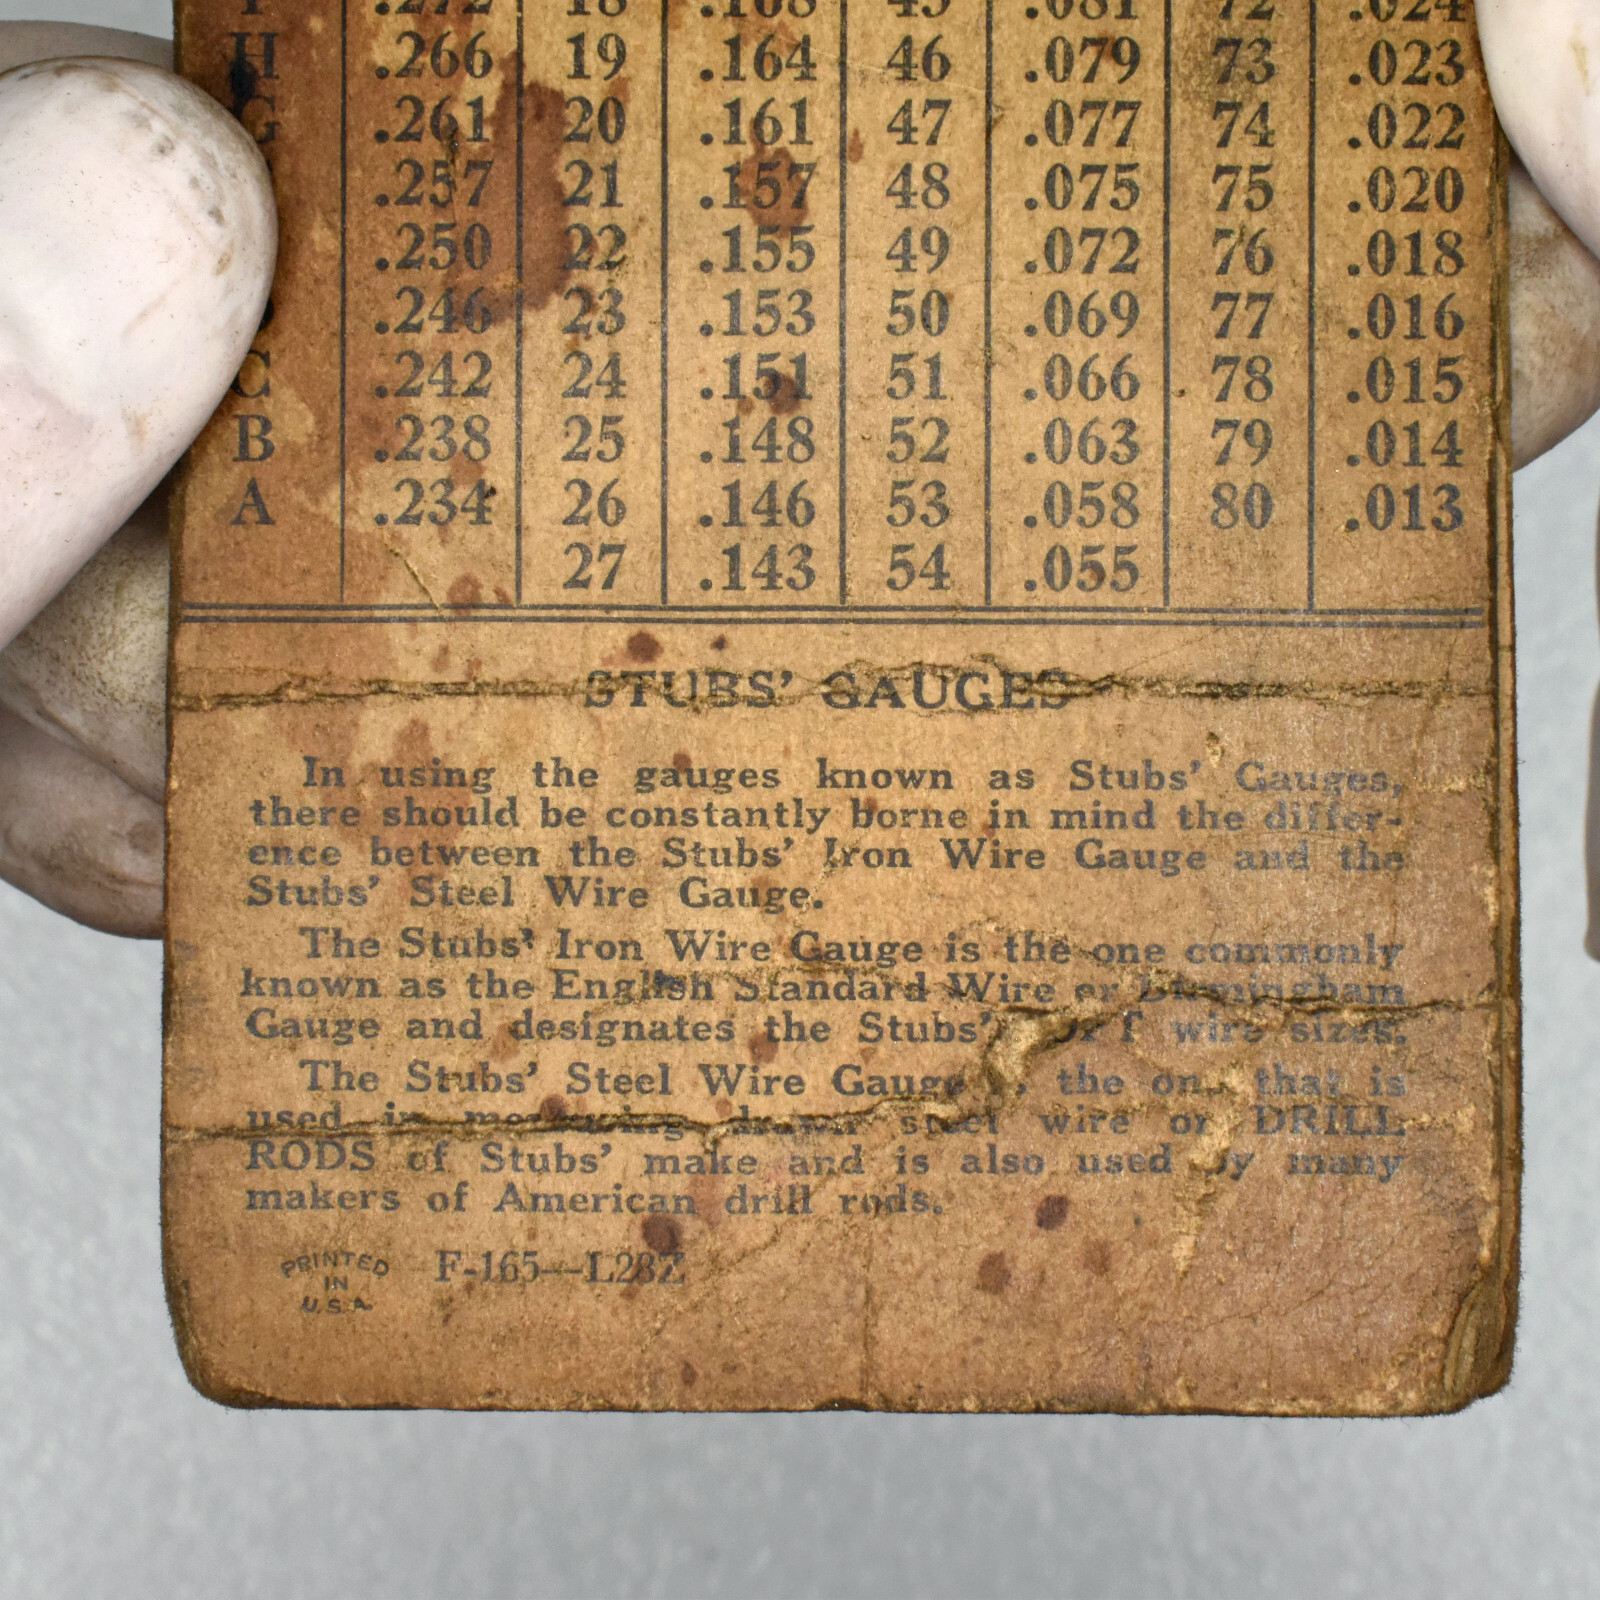 .272 18 .168 45 .081 72 .024
H .266 19 .164 46 .079 73 .023
G .261 20 .161 47 .077 74 .022
.257 21 .157 48 .075 75 .020
.250 22 .155 49 .072 76 .018
.246 23 .153 50 .069 77 .016
C .242 24 .151 51 .066 78 .015
B .238 25 .148 52 .063 79 .014
A .234 26 .146 53 .058 80 .013
27 .143 54 .055
STUBS' GAUGES
In using the gauges known as Stubs' Gauges,
there should be constantly borne in mind the differ-
ence between the Stubs' Iron Wire Gauge and the
Stubs' Steel Wire Gauge.
The Stubs' Iron Wire Gauge is the one commonly
known as the English Standard Wire or Birmingham
Gauge and designates the Stubs' SOFT wire sizes.
The Stubs' Steel Wire Gauge is the one that is
used in measuring drawn steel wire or DRILL
RODS of Stubs' make and is also used by many
makers of American drill rods.
PRINTED
IN
U.S.A.
F-165—L28Z